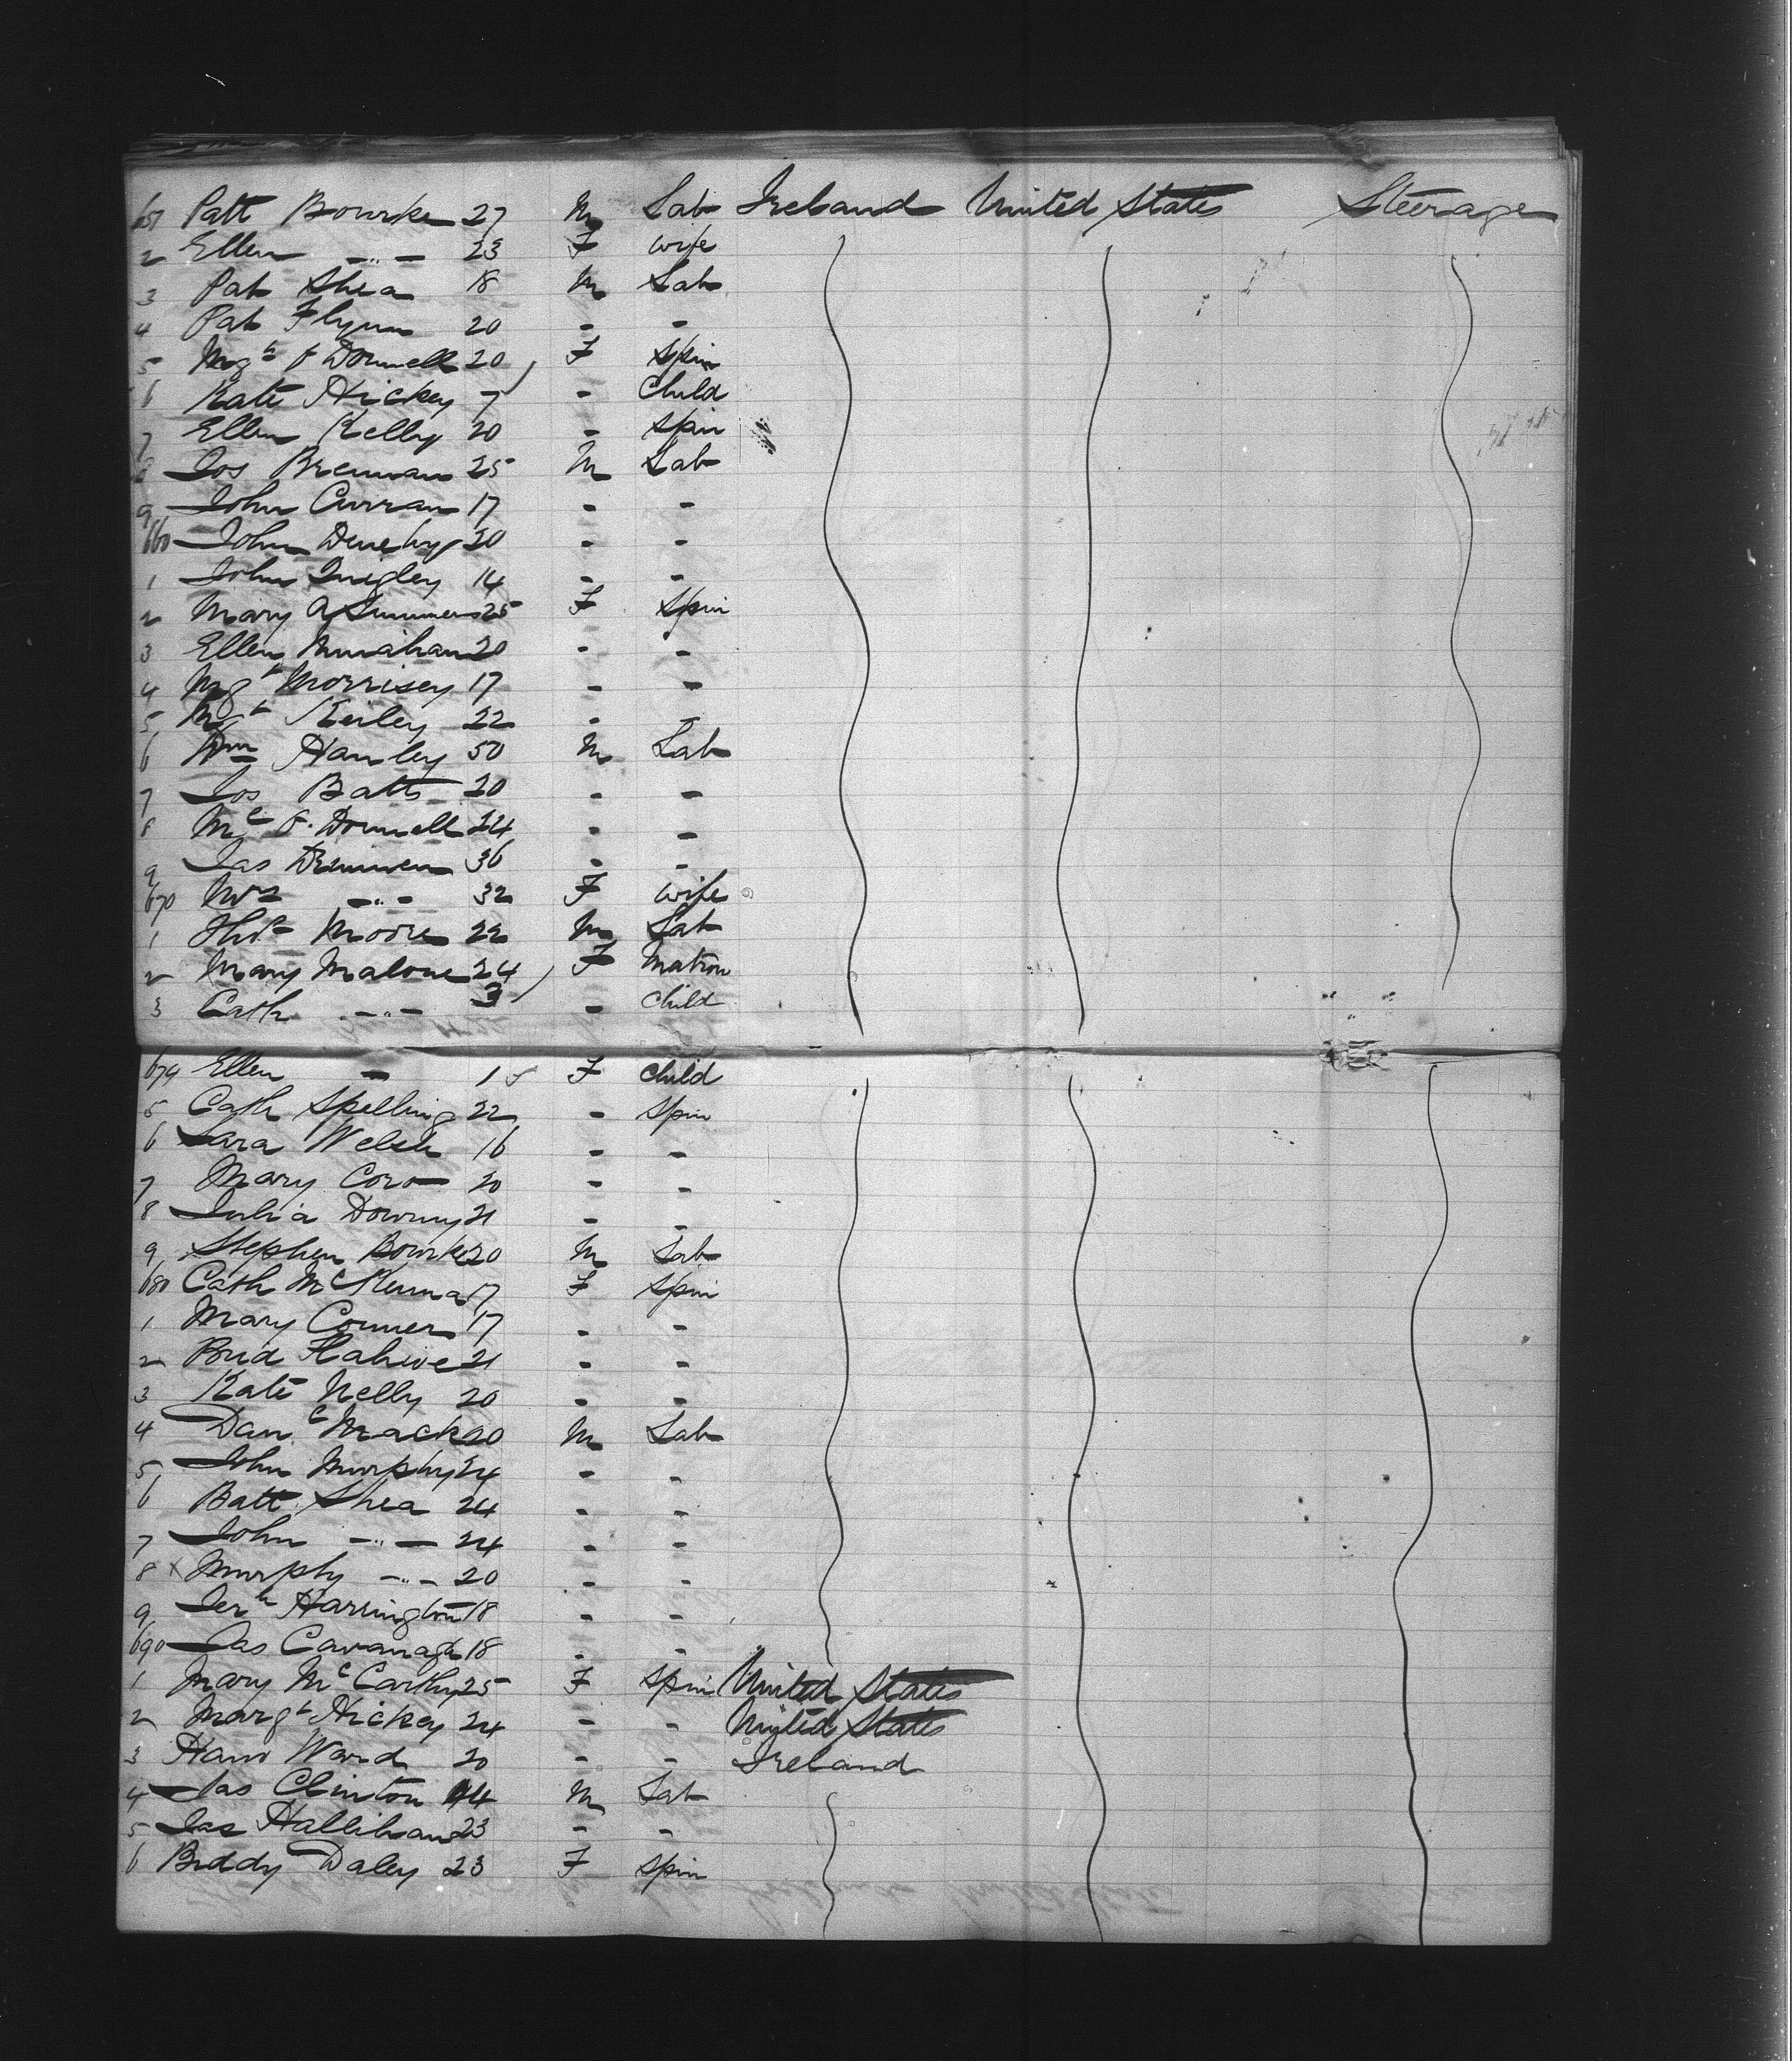 651 Patt Bourke 27 M Lab Ireland United States Steerage
2 Ellen -"- 23 F wife
3 Pat Shea 18 M Lab
4 Pat Flynn 20 - -
5 Mgt O Donnell 20 F Spin
6 Kate Hickey 7 - Child
7 Ellen Kelly 20 - Spin
8 Jos Brennan 25 M Lab
9 John Curran 17 - -
660 John Denehy 20 - -
1 John Quigley 14 - -
2 Mary A Summers 25 F Spin
3 Ellen 20 - -
4 Mgt Morrisey 17 - -
5 Mgt Keiley 22 -
6 Wm Hanley 50 M Lab
7 Jos Batts 20 - -
8 Mc O. Donnell 24 - -
9 Jas 36 - -
670 Mrs -"- 32 F wife
1 Thos Moore 22 M Lab
2 Mary Malone 24 F Matron
3 Cath -"- 3 - Child
674 Ellen - 1 F Child
5 Cath Spelling 22 - Spin
6 Sara Welsh 16 - -
7 Mary 20 - -
8 Julia Downy 21 - -
9 Stephen Bourke 20 M Lab
680 Cath McKenna 17 F Spin
1 Mary Conner 17 - -
2 Brid Flahive 21 - -
3 Kate Nelly 20 - -
4 Dan McMack 20 M Lab
5 John Murphy 24 - -
6 Batt Shea 24 - -
7 John -"- 24 - -
8 x Murphy -"- 20 - -
9 Jerh Harrington 18 - -
690 Jas Cavanagh 18 - -
1 Mary McCarthy 25 F Spin United States
2 Margt Hickey 24 - - United States
3 Hano Ward 20 - - Ireland
4 Jas Clinton 44 M Lab
5 Jas Hallihan 23 - -
6 Biddy Daley 23 F Spin